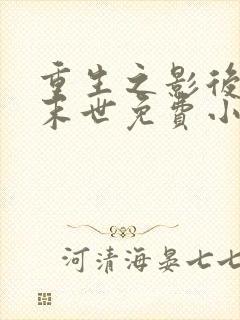 重生之影後
末世免費小
河清海晏七七